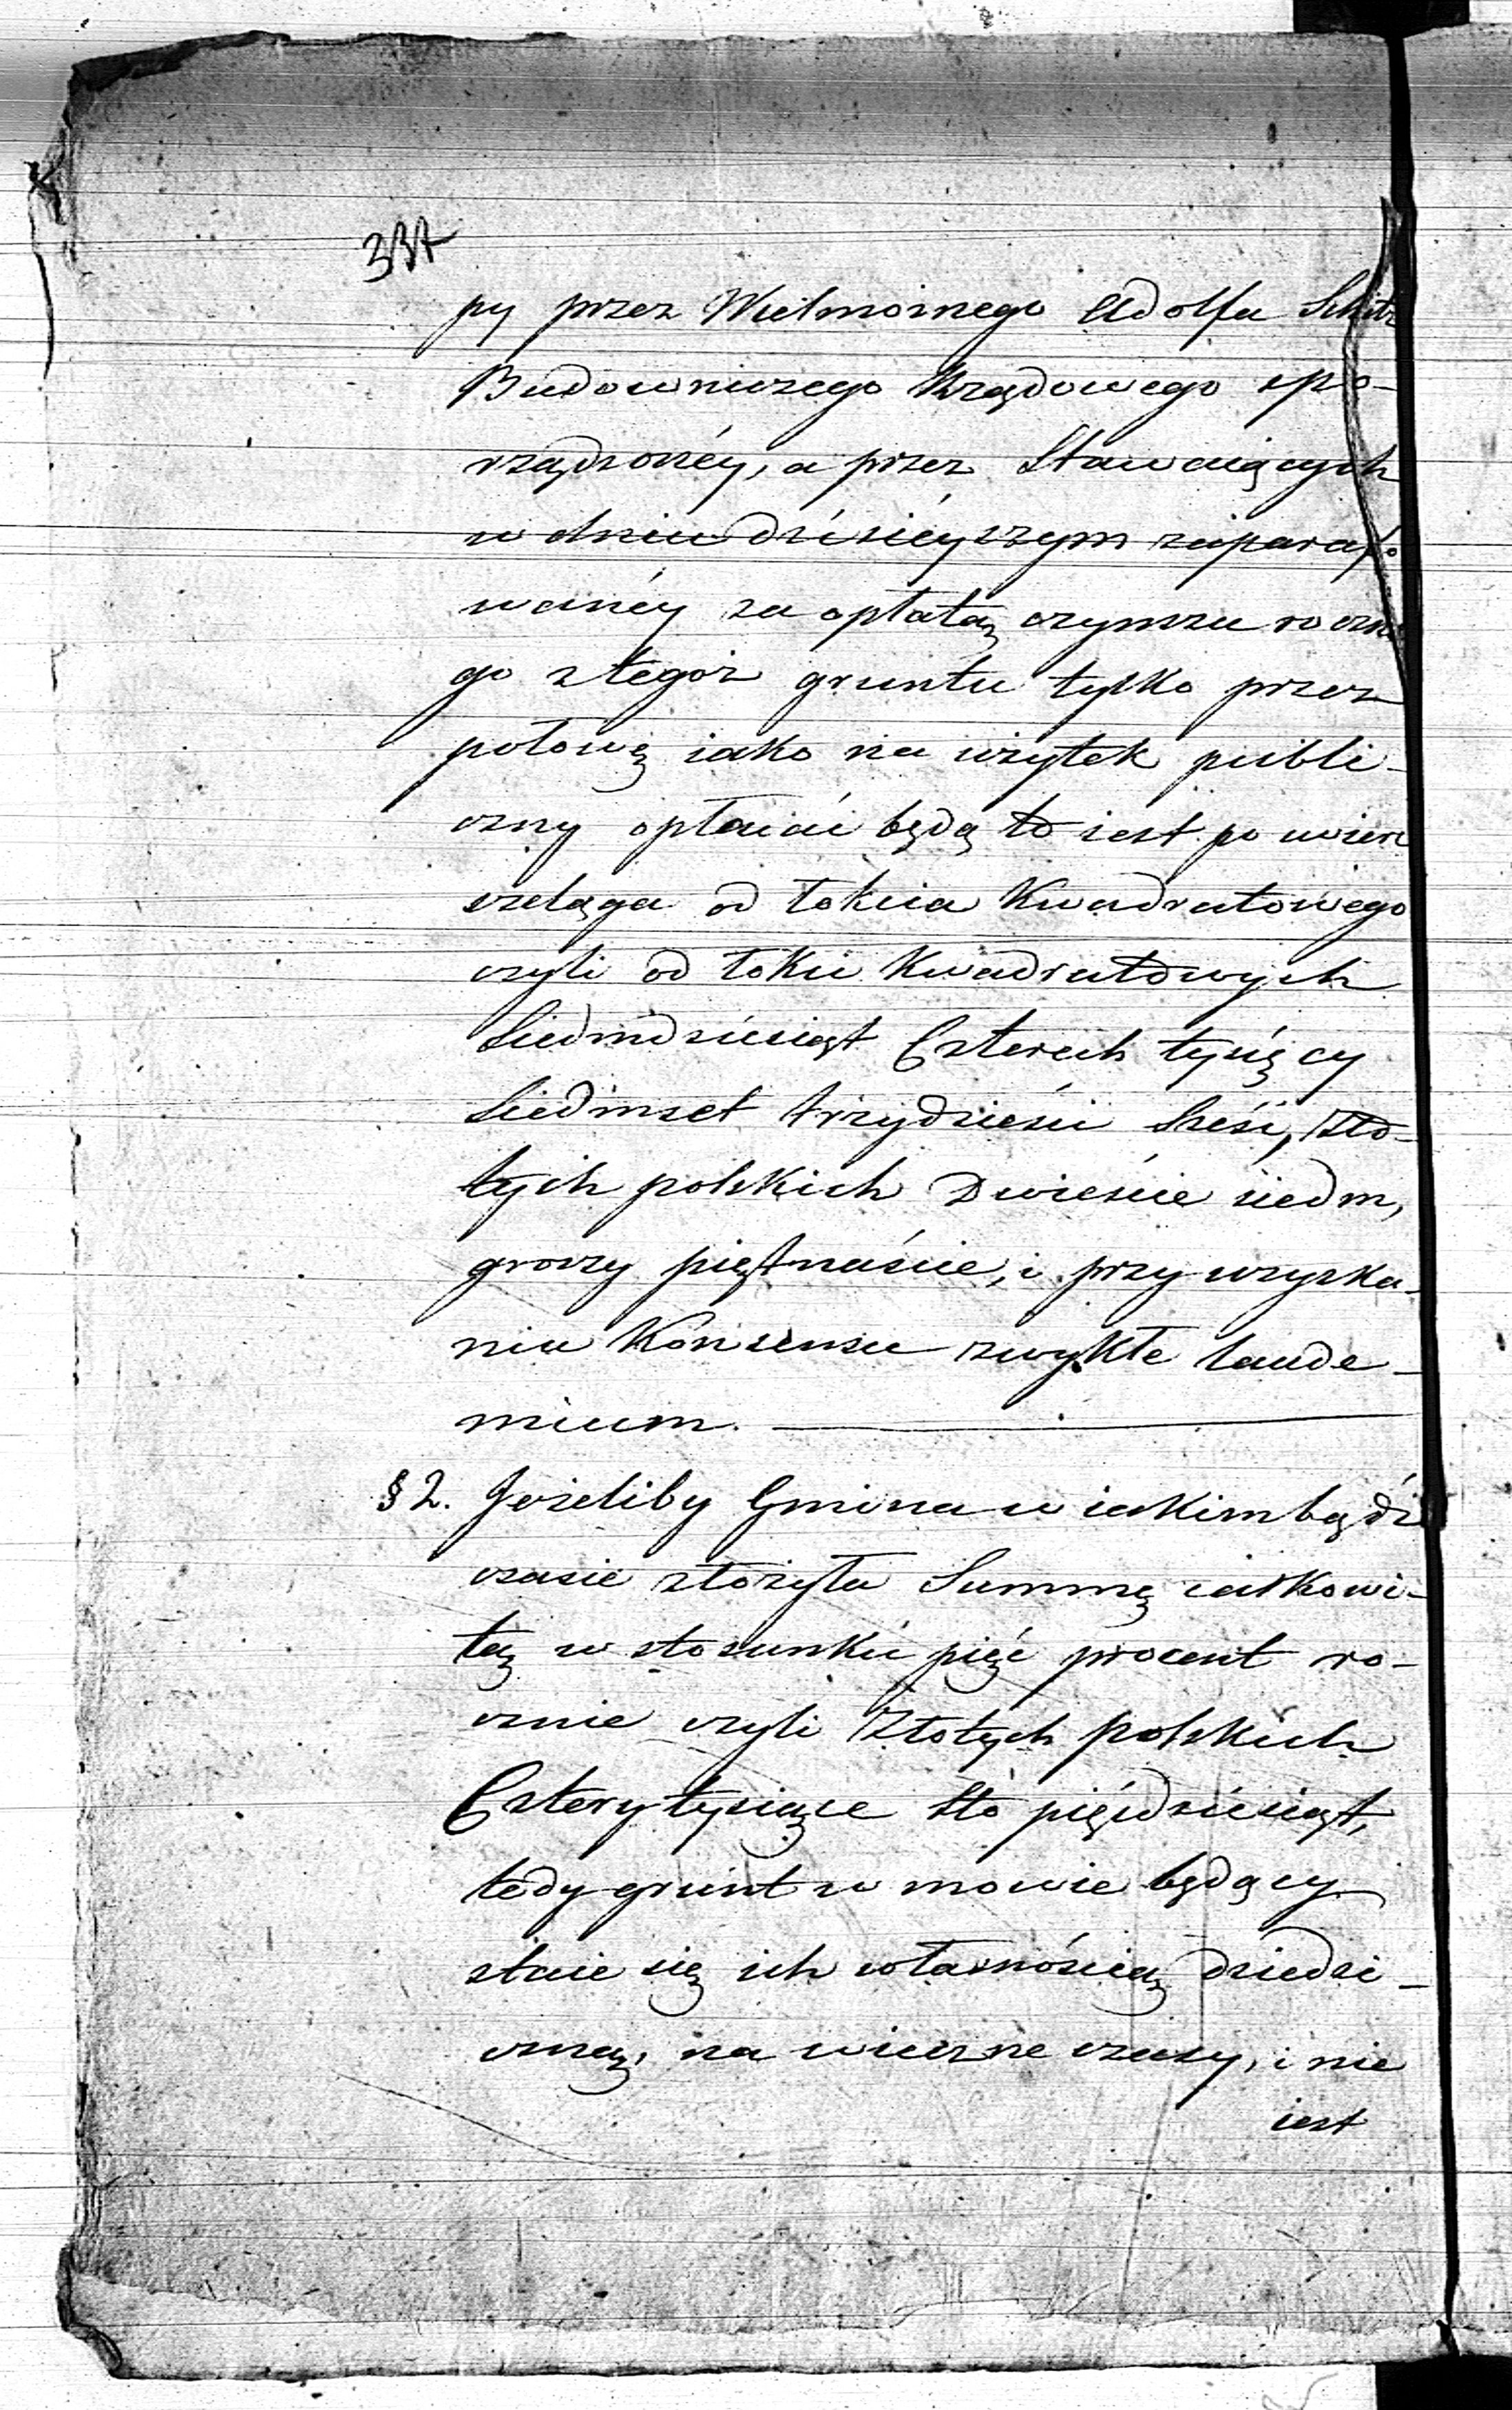 337
py przez Wielmożnego Adolfa Schütz
Budowniczego Rządowego spo-
rządzonéy, a przez Stawaiących
w dniu dzisieyszym zaparafo
wanéy za opłatą czynszu roczne
go z tegoż gruntu tylko przez
połowę iako na użytek publi-
czny opłaicać będą to iest po ćwierć
szeląga od łokcia Kwadratowego
czyli od łokci Kwadratowych
Siedmdziesiąt Czterech tysięcy
Siedmset trzydzieści sześć, Zło-
tych polskich Dwieście siedm,
groszy piętnaście, i przy uzyska-
niu Konsensu zwykłe laude-
mium.
§ 2. Jeżeliby Gmina w iakimbądź
czasie złożyła Summę całkowi-
tą w stosunku pięć procent ro-
cznie czyli Złotych polskich
Cztery tysiące sto pięćdziesiąt,
tedy grunt w mowie będący
staie się ich własnością dziedzi-
czną, na wieczne czasy, i nie
iest